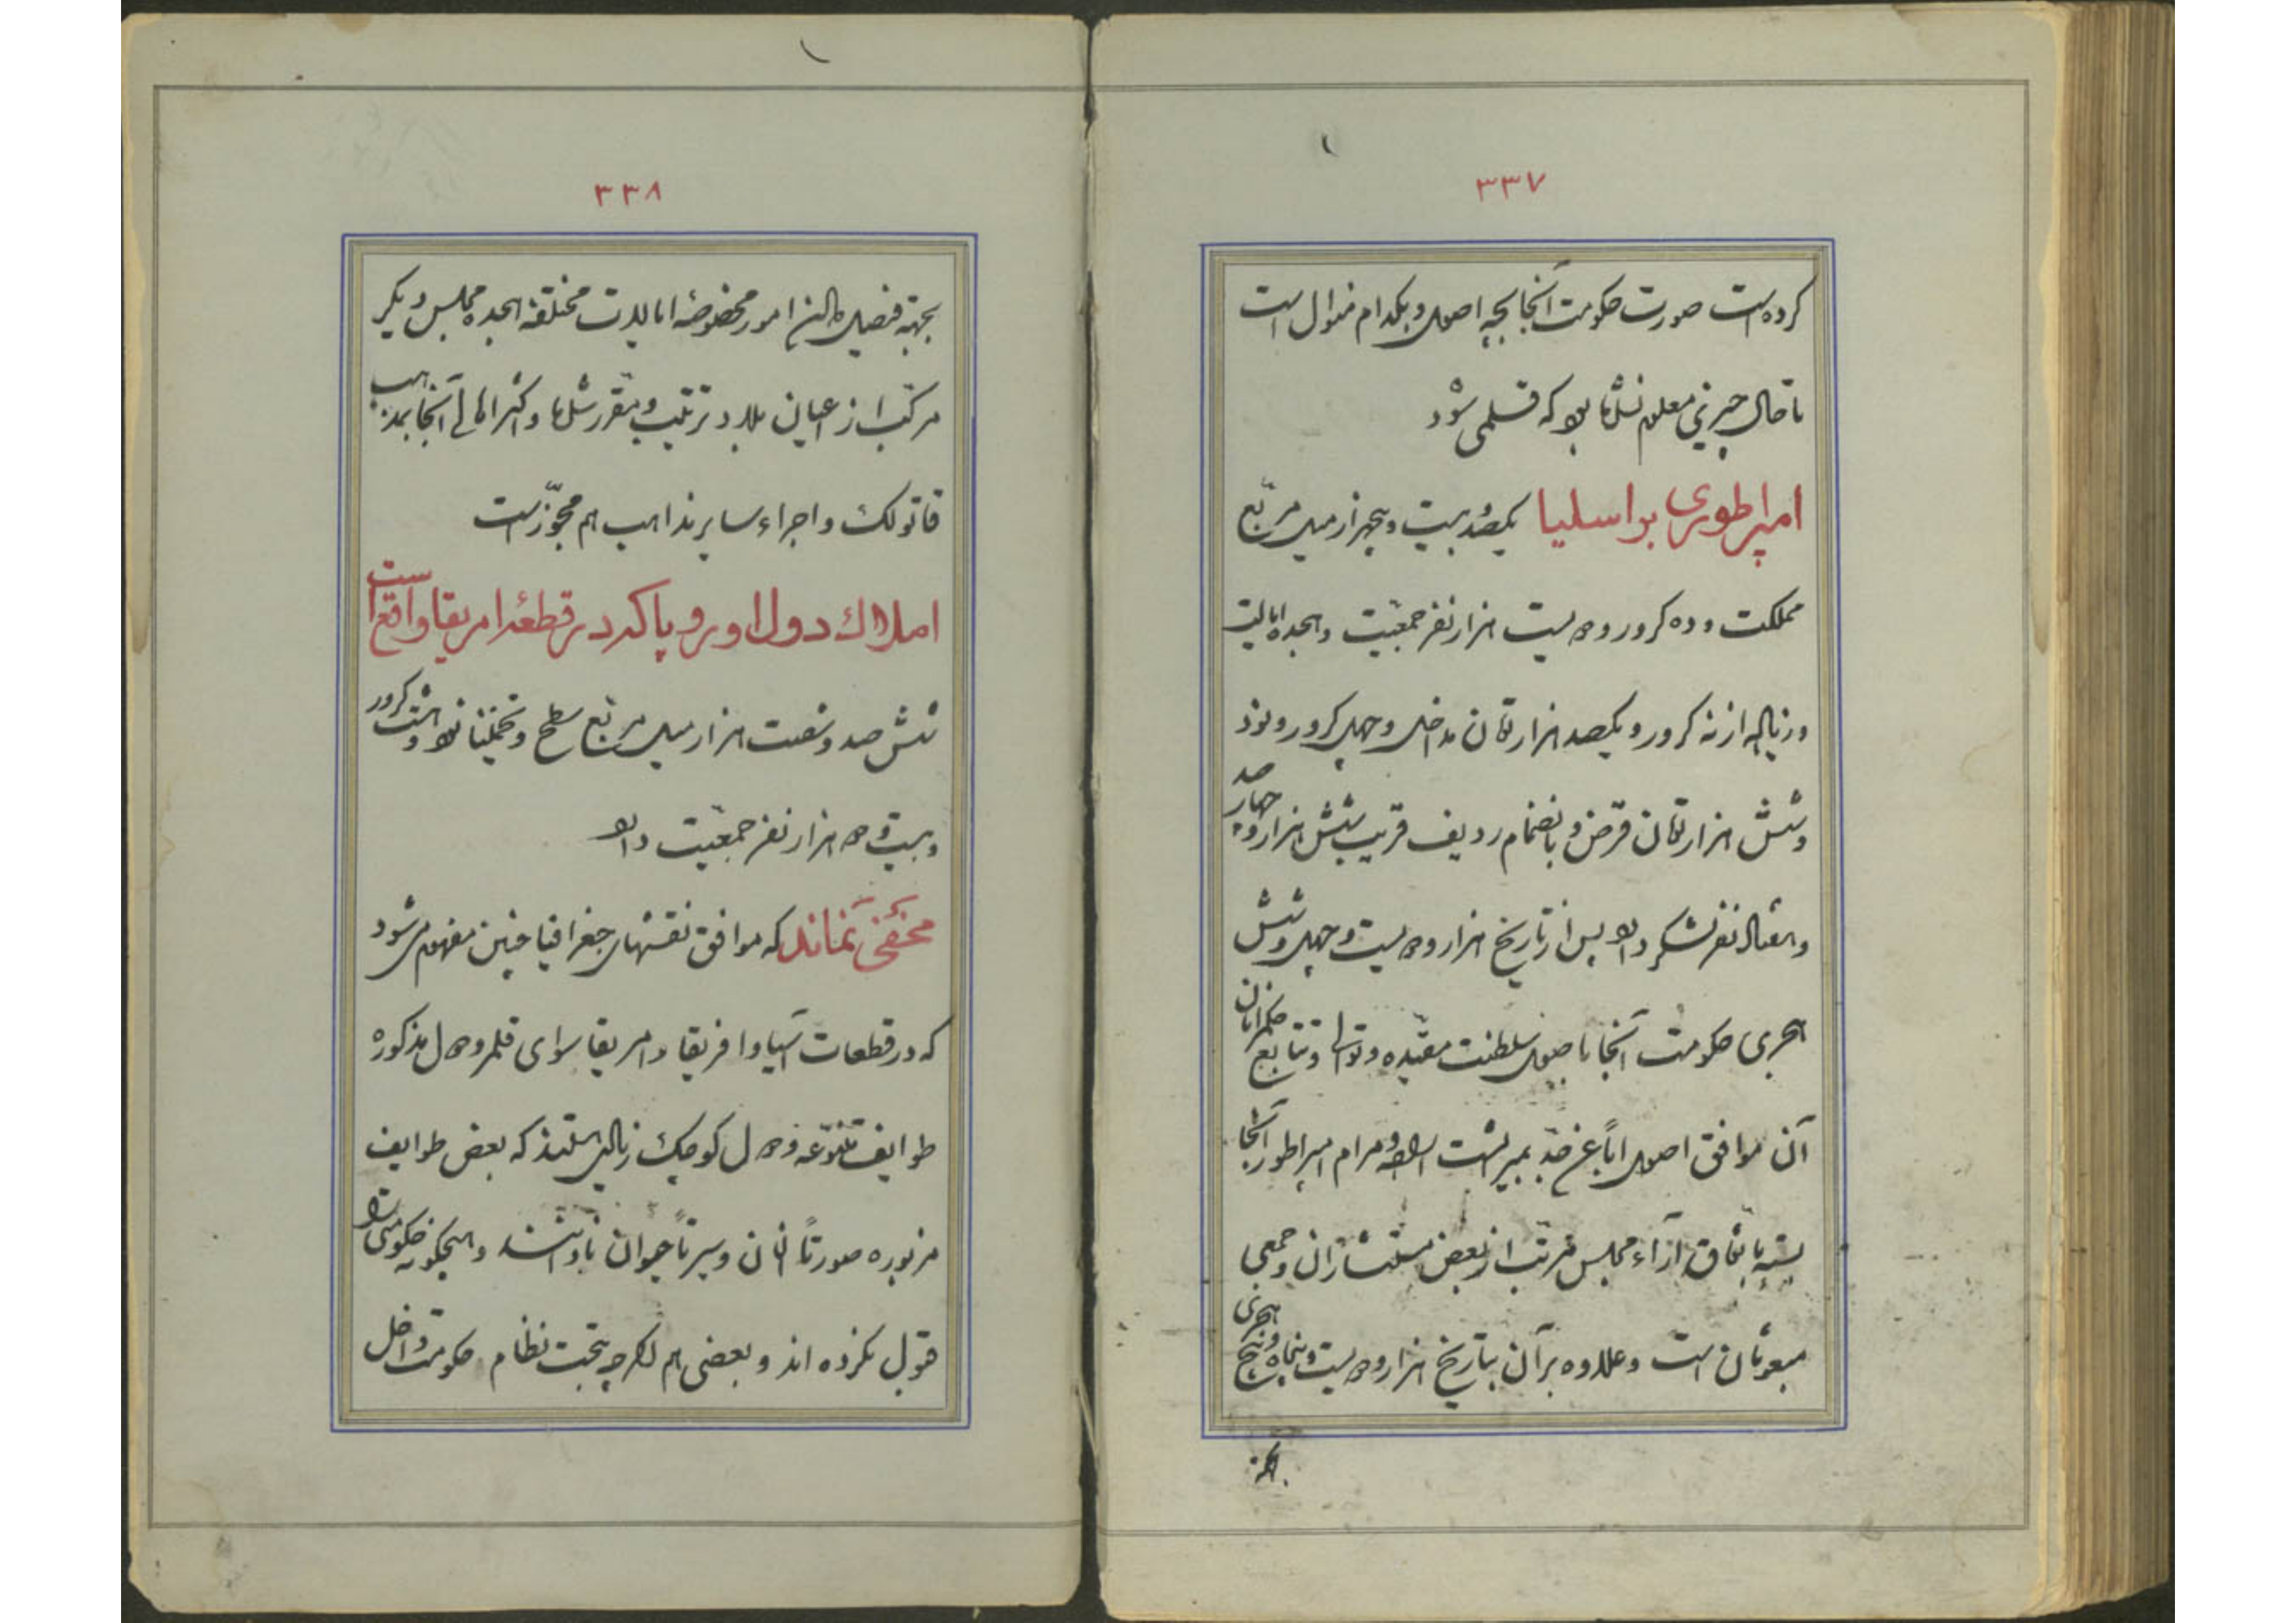 ۳۳۷
کرده است صورت حکومت آنجا بچه اصول و بکدام منوال است
تا حال چیزی معلوم نشده که قلمی شود
امپراطوری براسلیا یکصد و بیست و پنجهزار میل مربع
مملکت و ده کرور و دویست هزار نفر جمعیت و هجده ایالت
و زیاله از نه کرور و یکصد هزار تومان مداخل و چهل کرور و نود
و شش هزار تومان قرض و بانضمام ردیف قریب شش هزار و چهار صد
و هفتاد نفر لشکر دارد پس از تاریخ هزار و دویست و چهل و شش
هجری حکومت آنجا باصول سلطنت مقیده و توالی و تتابع حکمرانان
آن موافق اصول اباً عن جدٍ بمیراثست اراده و مرام امپراطور آنجا
بسته باتفاق آراء مجلس مرتب از بعض مستشاران و جمعی
مبعوثان است و علاوه بر آن بتاریخ هزار و دویست و پنجاه و پنج هجری
۳۳۸
بجهة فیصل دادن امور مخصوصهٔ ایالات مختلفهٔ هجده مجلس دیگر
مرکب از اعیان بلاد ترتیب و مقرر شده و اکثر اهالی آنجا بمذهب
قاتولک و اجراء سایر مذاهب هم مجوّز است
املاک دول اوروپا که در قطعهٔ امریقا واقع است
شش صد و شصت هزار میل مربع سطح و تخمیناً نود و هشت کرور
و بیست و دو هزار نفر جمعیت دارد
مخفی نماند که موافق نقشهای جغرافیا چنین مفهوم میشود
که در قطعات آسیا و افریقا و امریقا سوای قلمرو دول مذکوره
طوایف متنوّعه و دول کوچک زیادی هستند که بعض طوایف
مزبوره صورتاً انسان و سیرتاً حیوان نادانند و هیچگونه حکومتی را
قبول نکرده اند و بعضی هم اگر چه تحت نظام حکومت داخل